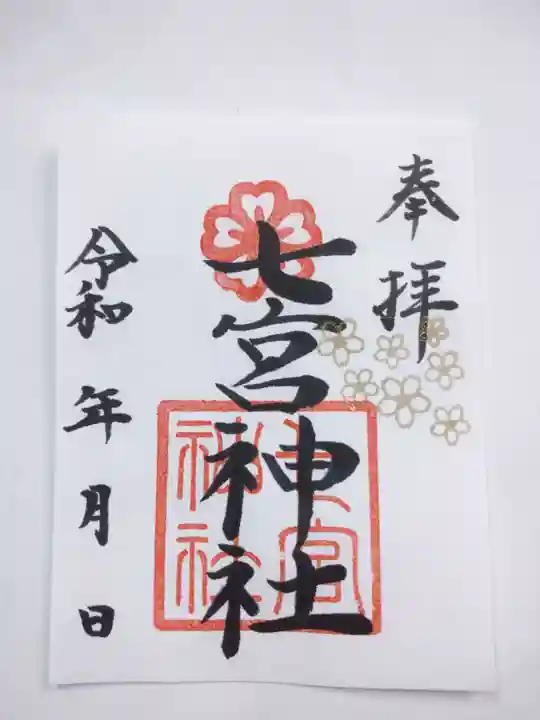 奉拝
七宮神社
七宮神社
令和 年 月 日